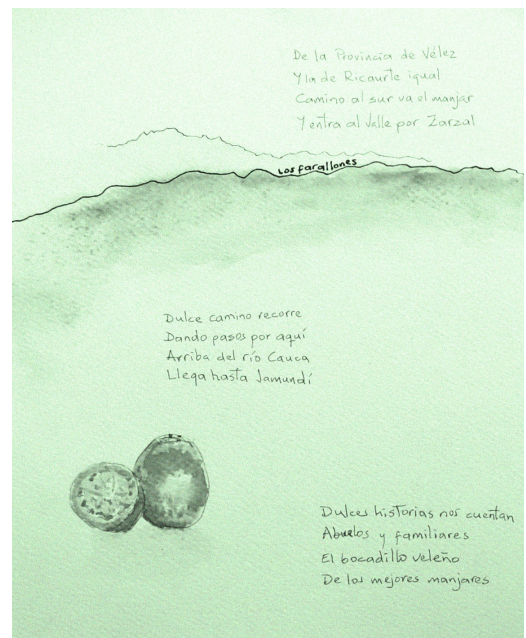 De la Provincia de Vélez
Y la de Ricaurte igual
Camino al sur va el manjar
Y entra al Valle por Zarzal
Los farallones
Dulce camino recorre
Dando pasos por aquí
Arriba del río Cauca
Llega hasta Jamundí
Dulces historias nos cuentan
Abuelos y familiares
El bocadillo veleño
De los mejores manjares